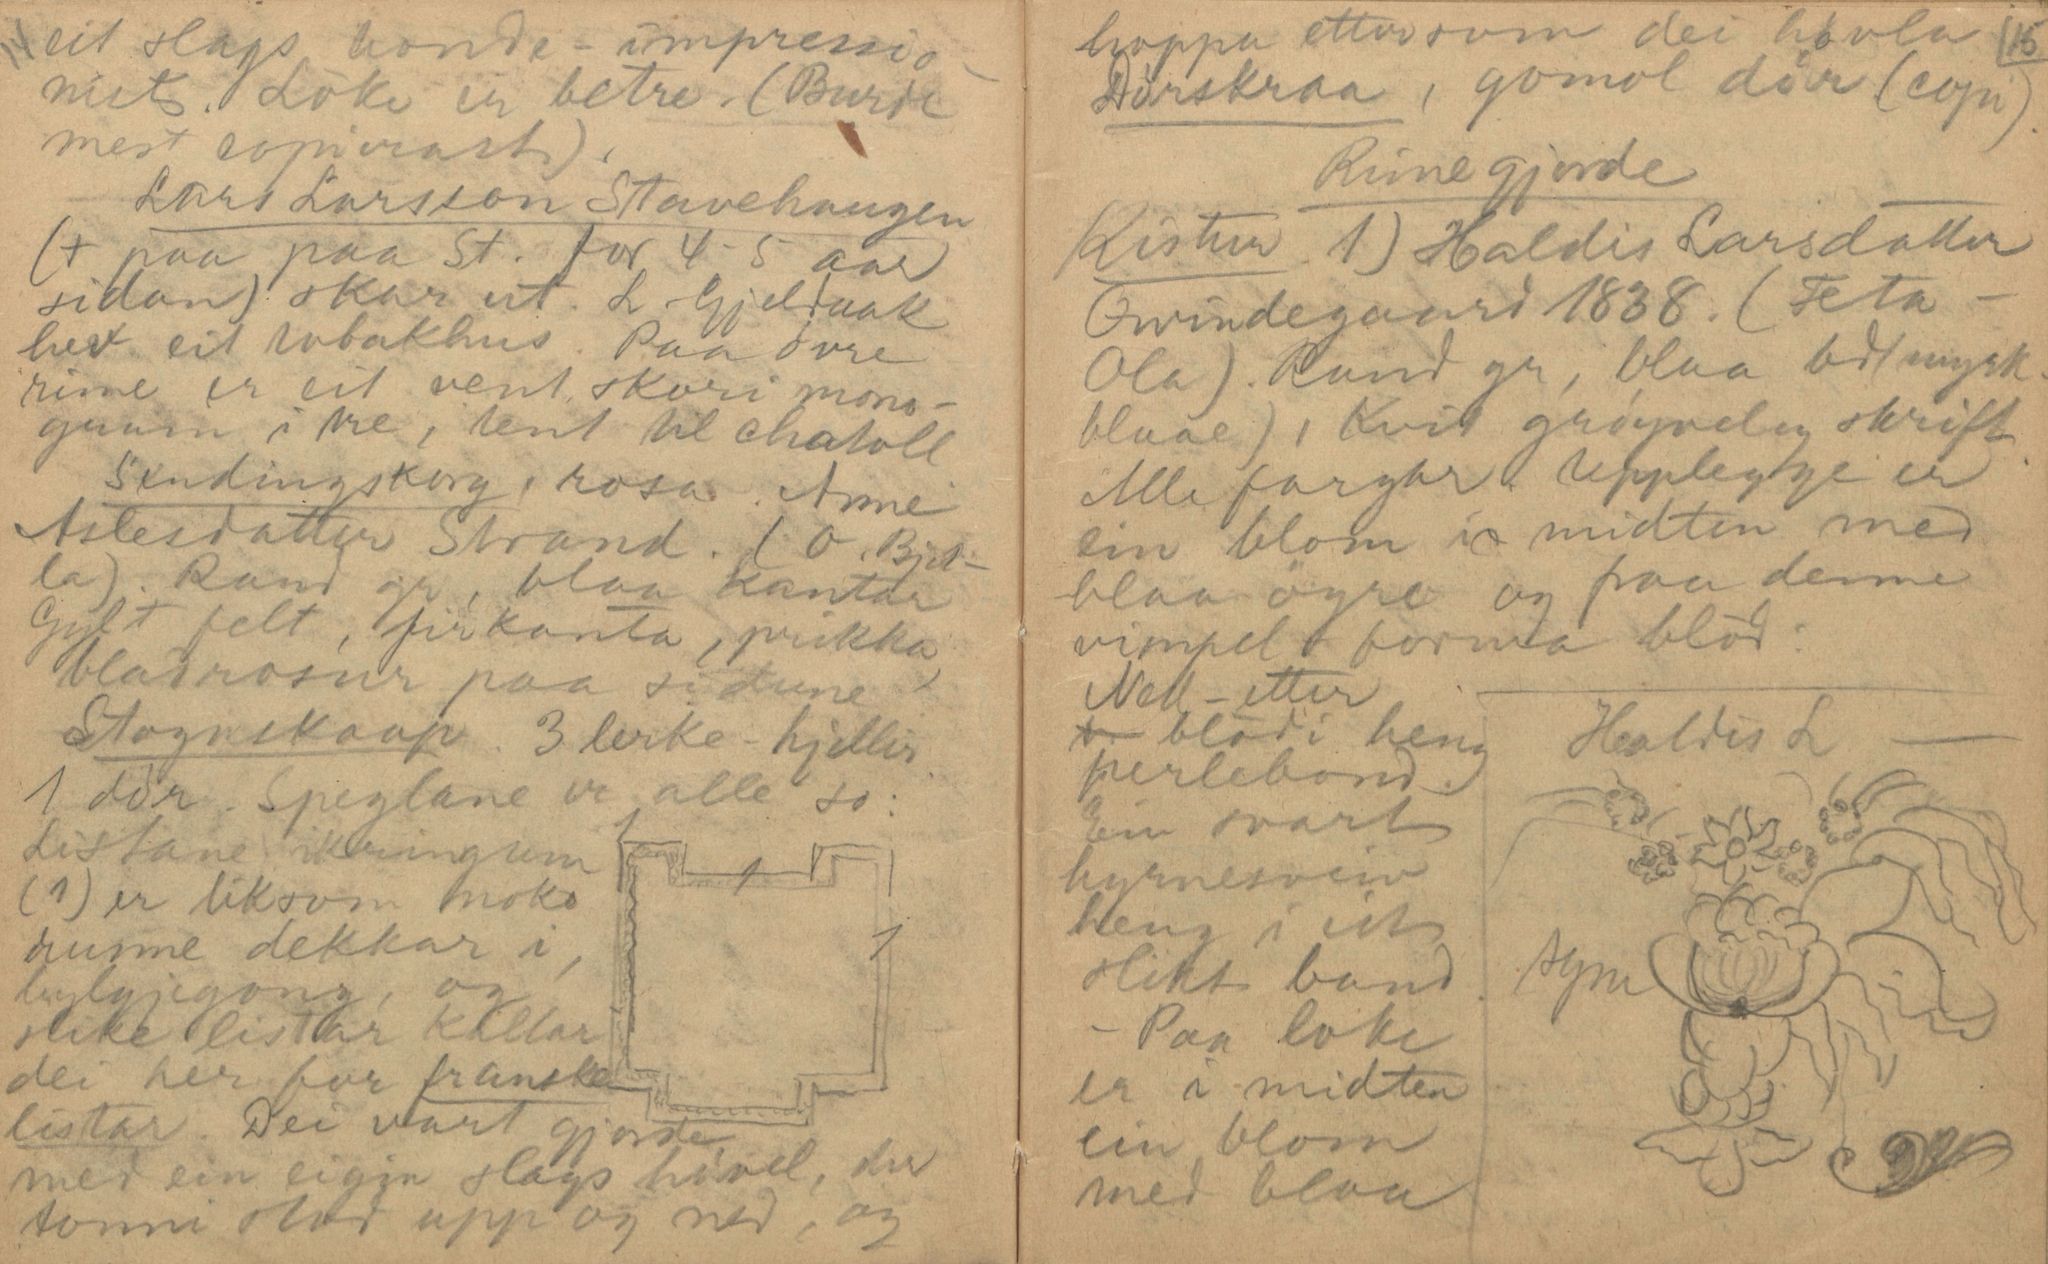 14
eit slags bonde-impressio-
nist. Loke er betre. (Burde
mest copierast).
Lars Larsson Stavehaugen
(+ paa paa St. for 4-5 aar
sidan) skar ut. L. Gjeldaak
hev eit tobakhus. Paa övre
rime er eit vent skori mono-
gram i tre, tent til chatoll
Sendingskorg, rosa. Anne
Aslesdatter Strand. (O. Bjel-
la). Rand gr, blaa kantar
Gylt felt, firkanta, prikka,
bladrosur paa sidune
Stognskaap. 3 lerke-hjellir
1 dör. Speglane er alle so:
Listane ikringum
(1) er liksom noko
runne dekkar i,
bylgjegong, og
slike listar kallar
dei her for franske
listar. Dei vart gjorde
med ein eigin slags hövel, der
tonni stod upp og ned, og
1
1
1
15
hoppa ettersom dei hövla
Dörskraa, gomol dör (copi).
Rime gjorde
Kistur 1) Haldis Larsdatter
Qvindegaard 1838. (Feta-
Ola). Rand gr, blaa bd (myrk-
blaae), Kvit gröyveleg skrift.
Alle fargar. Upplegge er
ein blom i midten med
blaa ögre og paa denne
vimpel forma blöd:
Ned-etter
blödi heng
perlebond.
Ein svart
hyrnesvein
heng i eit
slikt band.
- Paa loke
er i midten
ein blom
med blaa
Haldis L —
sym